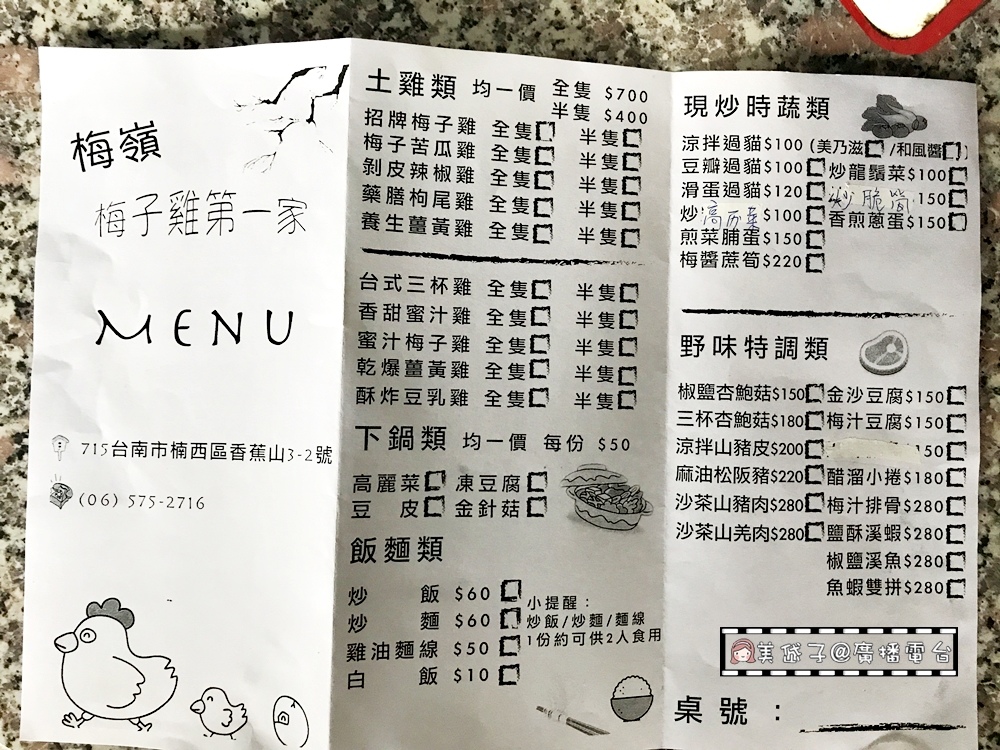 梅嶺
梅子雞第一家
MENU
715台南市楠西區香蕉山3-2號
(06) 575-2716
土雞類 均一價 全隻 $700
半隻 $400
招牌梅子雞 全隻 半隻
梅子苦瓜雞 全隻 半隻
剝皮辣椒雞 全隻 半隻
藥膳枸尾雞 全隻 半隻
養生薑黃雞 全隻 半隻
台式三杯雞 全隻 半隻
香甜蜜汁雞 全隻 半隻
蜜汁梅子雞 全隻 半隻
乾爆薑黃雞 全隻 半隻
酥炸豆乳雞 全隻 半隻
下鍋類 均一價 每份 $50
高麗菜 凍豆腐
豆皮 金針菇
飯麵類
炒飯 $60
炒麵 $60
雞油麵線 $50
白飯 $10
小提醒：
炒飯/炒麵/麵線
1份約可供2人食用
現炒時蔬類
涼拌過貓$100 (美乃滋 /和風醬 )
豆瓣過貓$100 炒龍鬚菜$100
滑蛋過貓$120 炒脆筍 150
炒高麗菜$100 香煎蔥蛋$150
煎菜脯蛋$150
梅醬蔗筍$220
野味特調類
椒鹽杏鮑菇$150 金沙豆腐$150
三杯杏鮑菇$180 梅汁豆腐$150
涼拌山豬皮$200 50
麻油松阪豬$220 醋溜小捲$180
沙茶山豬肉$280 梅汁排骨$280
沙茶山羌肉$280 鹽酥溪蝦$280
椒鹽溪魚$280
魚蝦雙拼$280
美貸子@廣播電台
桌號：